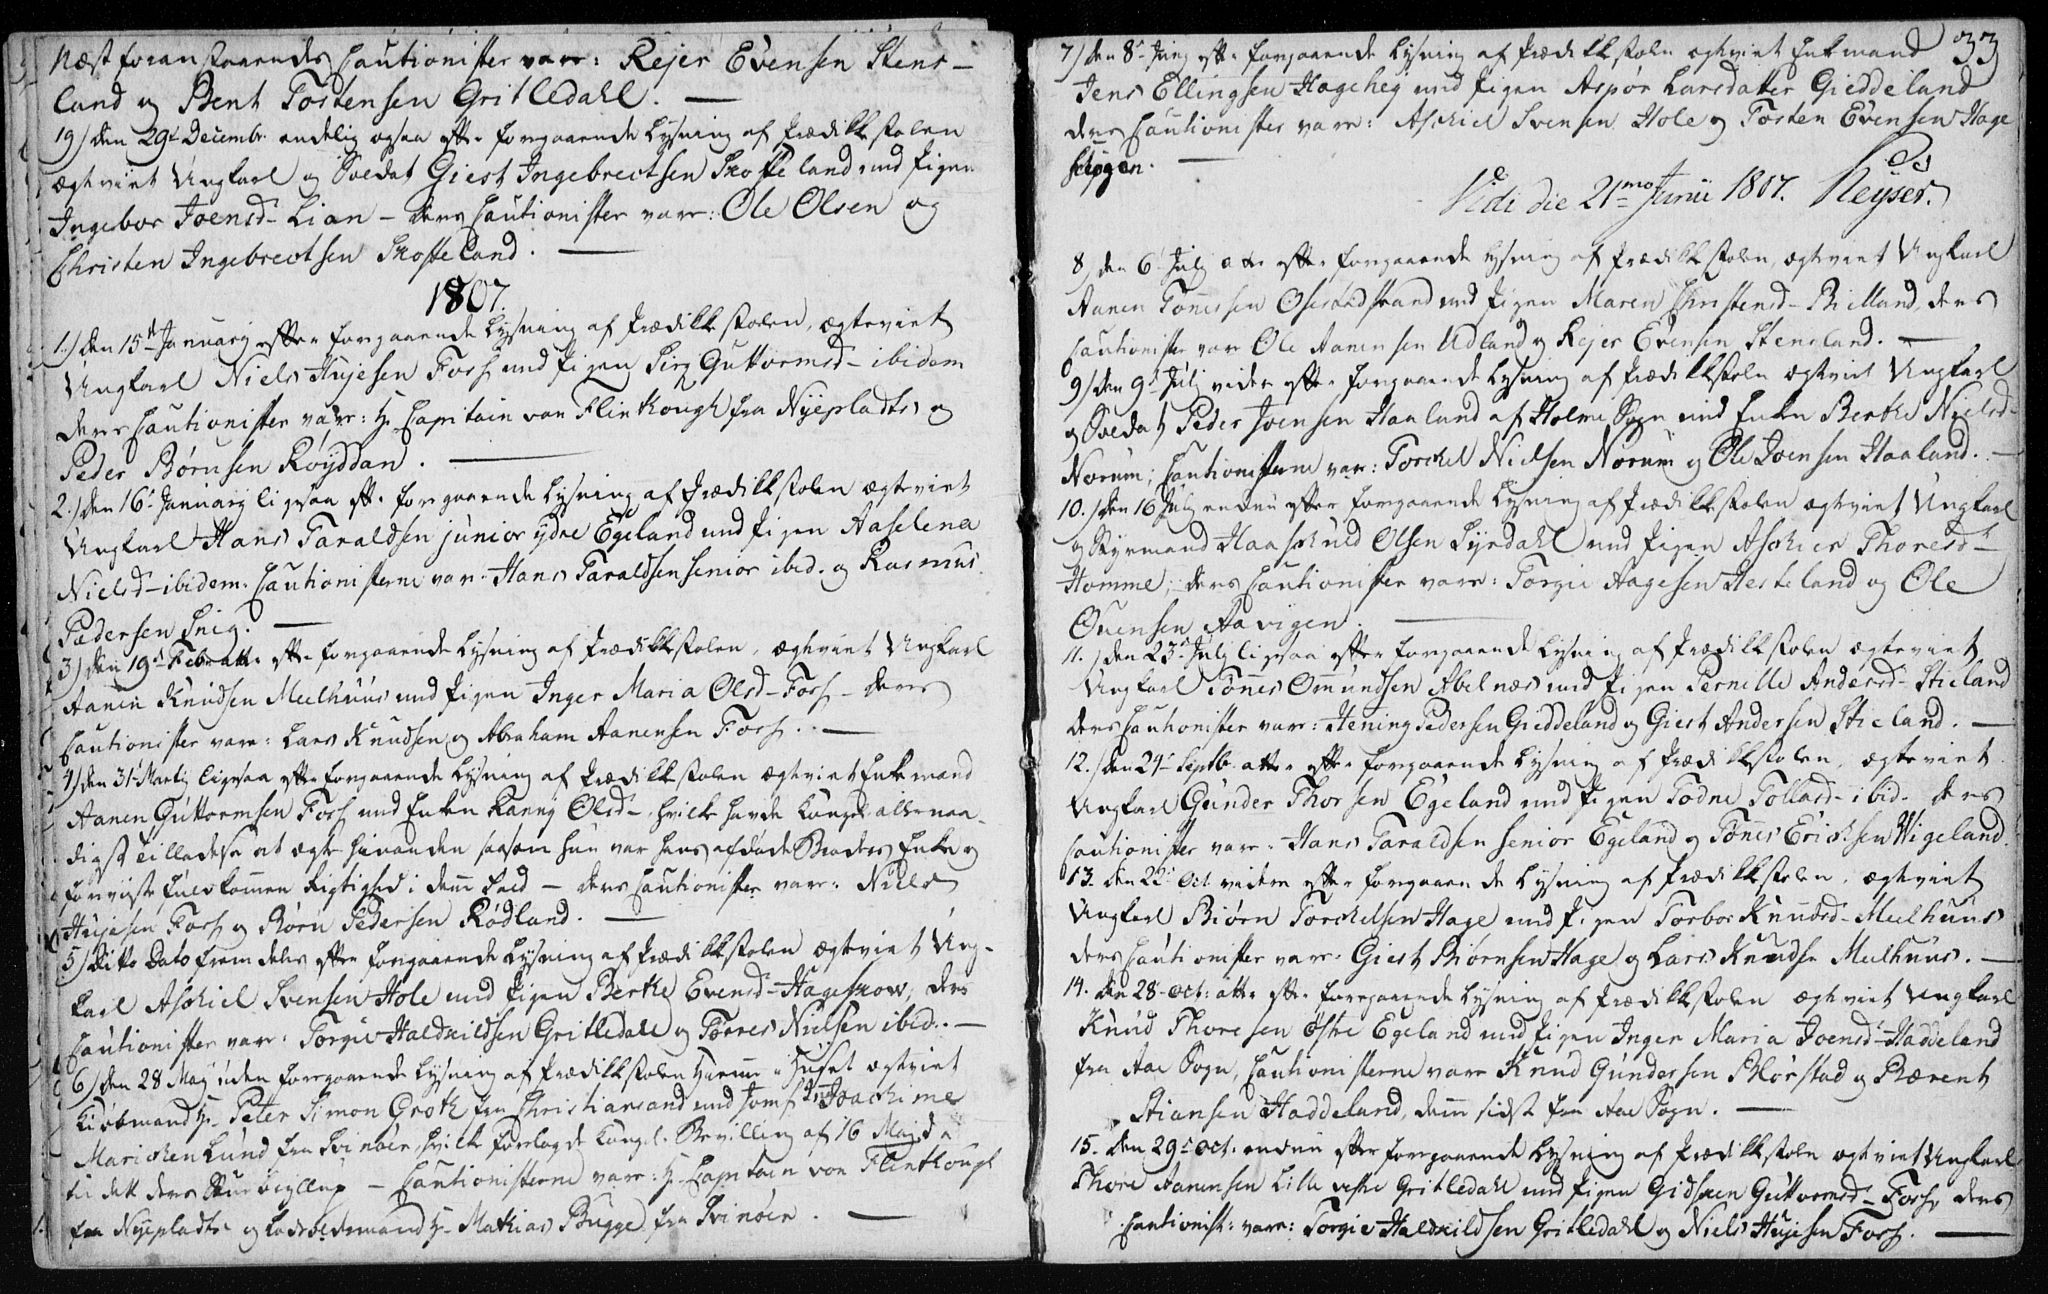 Næst foranstaaendes Cautionister vare: Rejer Evensen Stens-
land og Bent Tostensen Gritledahl. —
19) Den 29d Decembr. endelig ogsaa efter foregaaende Lysning af Prædikkestolen
ægteviet Ungkarl og Soldat Giest Ingebrectsen Skofteland med Pigen
Ingebor Joensd- Lian – Deres Cautionister vare: Ole Olsen og
Christen Ingebrectsen Skofteland. —
1807.
1.) Den 15de Januarij efter foregaaende Lysning af Prædikkestolen, ægteviet
Ungkarl Niels Hujesen Foss med Pigen Siri Guttormsd- ibidem
Deres Cautionister vare: Hr Capitain von Flinthough fra Nyepladts og
Peder Børnsen Røyddan. —
2.) Den 16d Januarij ligesaa eft. foregaaende Lysning af Prædikkestolen ægteviet
Ungkarl Hans Taraldsen junior ydre Egeland med Pigen Aaselena
Nielsd- ibidem. Cautionisterne var. Hans Taraldsen senior ibid. og Rasmus
Pedersen Snig. —
3) Den 19d Febr. atter eft. foregaaende Lysning af Prædikkestolen, ægteviet Ungkarl
Aanen Knudsen Meelhuus med Pigen Inger Maria Olsd- Foss – Deres
Cautionister vare: Lars Knudsen og Abraham Aanensen Foss. —
4) Den 31d Martij ligesaa efter foregaaende Lysning af Prædikkestolen ægteviet Enkemand
Aanen Guttormsen Foss med Enken Ranny Olsd-, hvilke havde Kongel. allernaa-
digst Tilladelse at ægte hinanden saasom hun var hans afdøde Broders Enke og
forviiste fuldkommen Rigtighed i dend Hald – Deres Cautionister vare: Niels
Hujesen Foss og Børn Pedersen Rødland. —
5) Ditto Dato fremdeles efter foregaaende Lysning af Prædikkestolen ægteviet Ung-
karl Aschiel Svensen Hole med Pigen Berthe Evensd- Hageskow, Deres
Cautionister vare: Torgie Haldkildsen Gritledahl og Torres Nielsen ibid. —
6) Den 28 Maij uden foregaaende Lysning af Prædikkestolen hiemme i Huset ægteviet
Kiøbmand Hr. Peter Simon Groth fra Christiansand med Jomf: Joachime
Marichen Lund fra Svinøer, hvilke foreladgde Kongel. Bevilling af 16 Maji d. a
til dett deres Bryllup – Cautionisterne vare: Hr Capitain von Flinthough
fra Nyepladts og Hr. Mathias Bugge fra Svinøer. —
33
7) Den 8d Junij efter foregaaende Lysning af Prædikkestolen ægteviet Enkemand
Jens Ellingsen Hagehey med Pigen Aspør Larsdatter Gieddeland
deres Cautionister vare: Aschiel Svensen Hole og Tosten Evensen Hage
schogen. —
Vidi die 21mo Junii 1807. Keyser.
8) Den 6 Julj atter efter foregaaende Lysning af Prædikkestolen, ægteviet Ungkarl
Aanen Tønessen Oserødstrand med Pigen Maren Christensd- Bielland, deres
Cautionister var Ole Aanensen Udland og Rejer Evensen Stensland. —
9) Den 9d Julj videre efter foregaaende Lysning af Prædikkestolen ægteviet Ungkarl
og Soldat Peder Joensen Haaland af Holme Sogn med Enken Berthe Nielsd-
Norum; Cautionisterne var: Torckel Nielsen Norum og Ole Joensen Haaland. —
10.) Den 16 Julj endnu efter foregaaende Lysning af Prædikkestolen ægteviet Ungkarl
og Styrmand Haaschuld Olsen Syrdahl med Pigen Aschier Thoresd-
Homme; deres Cautionister vare: Torgie Aagesen Hesteland og Ole
Ouensen Aavigen. —
11.) Den 23d Julj ligesaa efter foregaaende Lysning af Prædikkestolen ægteviet
Ungkarl Tønnes Omundsen Abelnæs med Pigen Pernille Andersd- Stieland
deres Cautionister var: Hening Pedersen Gieddeland og Giest Andersen Stieland. —
12.) Den 24d Septb. atter efter foregaaende Lysning af Prædikkestolen, ægteviet
Ungkarl Gunder Thorsen Egeland med Pigen Todne Tollasd- ibid. deres
Cautionister vare: Hans Taraldsen senior Egeland og Tønes Erichsen Wigeland.
13. Den 22d Oct. videre efter foregaaende Lysning af Prædikkestolen, ægteviet
Ungkarl Biørn Torchelsen Hage med Pigen Torbor Knudsd- Meelhuus
deres Cautionister vare: Giest Biørnsen Hage og Lars Knudsen Meelhuus. —
14. Den 28 Oct: atter efter foregaaende Lysning af Prædikkestolen ægteviet Ungkarl
Knud Thoresen Østre Egeland med Pigen Inger Maria Joensd- Haddeland
fra Aae Sogn, Cautionisterne vare Knud Gundersen Blørstad og Bærent
Stiansen Haddeland, denne sidst fra Aae Sogn. —
15. Den 29d Oct. endnu efter foregaaende Lysning af Prædikkestolen ægteviet Ungkarl
Thore Aanensen Lille vestre Gritledahl med Pigen Gidsken Guttormsd- Foss, deres
Cautionist: vare: Torgie Haldkildsen Gritledahl og Niels Hujesen Foss. —